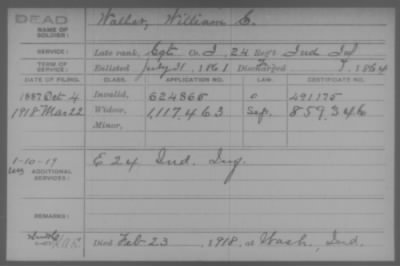 DEAD
NAME OF SOLDIER: William C.
SERVICE: Late rank, Sgt Co. I, 24 Reg't Ind Inf
TERM OF SERVICE: Enlisted July 31, 1861 Discharged 1864
DATE OF FILING. CLASS. APPLICATION NO. LAW. CERTIFICATE NO.
1887 Oct 4 Invalid, 624865 491175
1918 Mar 22 Widow, 1,117,463 Sep. 859346
Minor,
1-10-19
ADDITIONAL SERVICES: E 24 Ind. Inf.
REMARKS:
Died Feb 23, 1918, at Wash, Ind.